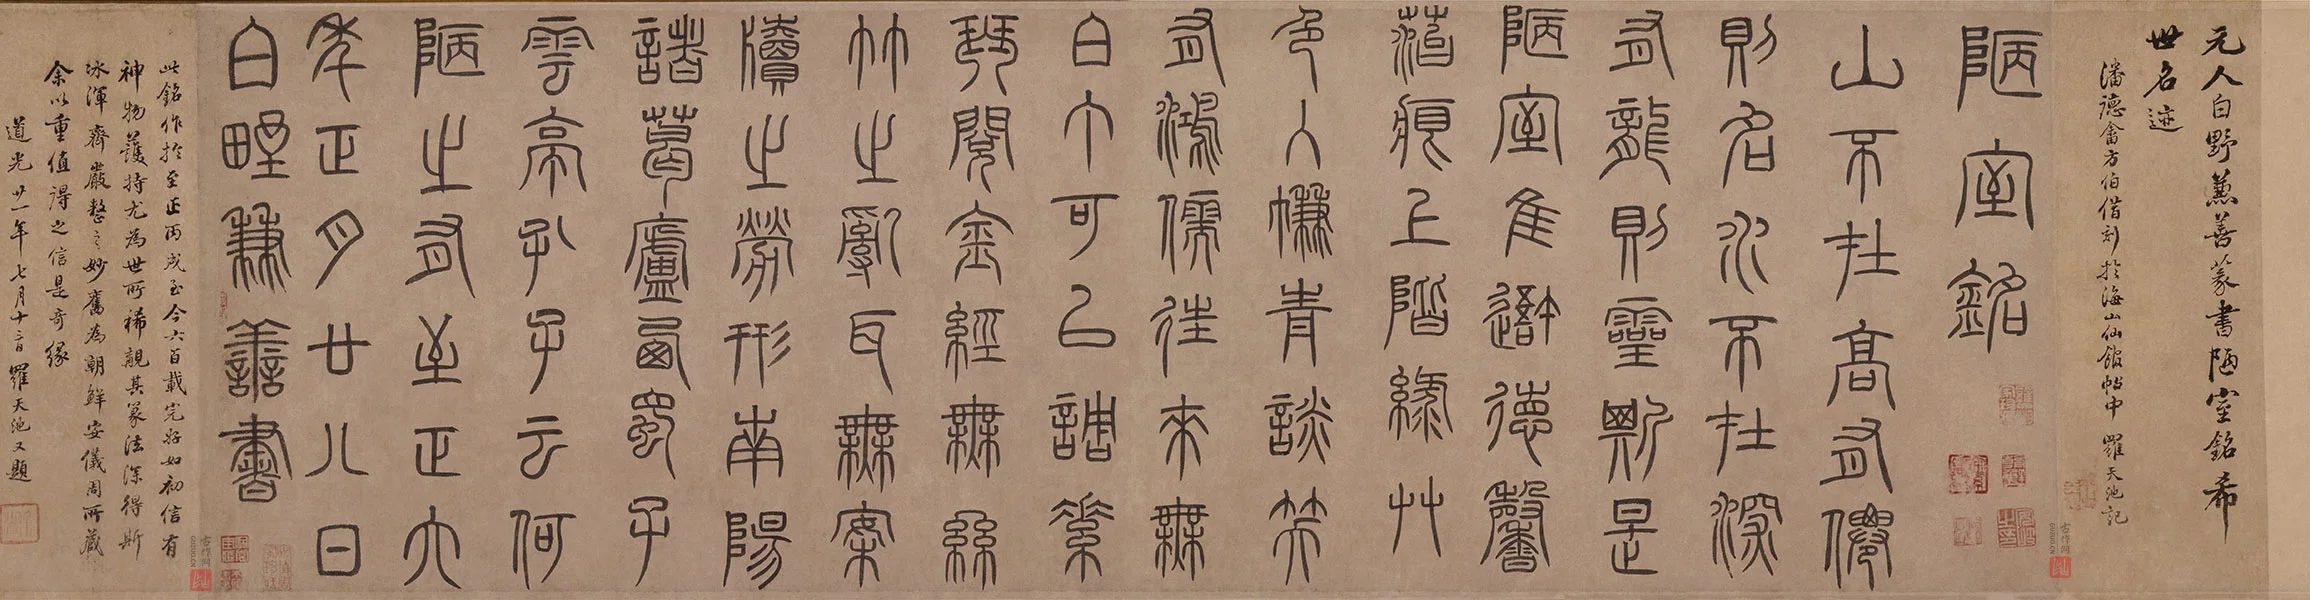 元人白野兼善篆書陋室銘希
世名迹
潘德畬方伯借刻於海山仙館帖中 羅天池記
陋室銘
山不在高有僊
則名水不在深
有龍則靈斯是
陋室隹䢩德馨
菭痕上階綠艸
色入㡘青談笑
有鴻儒往來無
白丁可以調素
琴閱金經無絲
竹之亂耳無案
牘之勞形南陽
諸葛廬西蜀子
雲亭孔子云何
陋之有至正六
年正月廿八日
白野兼善書
此銘作於至正丙戌至今六百載完好如初信有
神物護持尤為世所稀覯其篆法深得斯
冰渾齊嚴整之妙舊為朝鮮安儀周所藏
余以重值得之信是奇緣
道光廿一年七月十二日羅天池又題